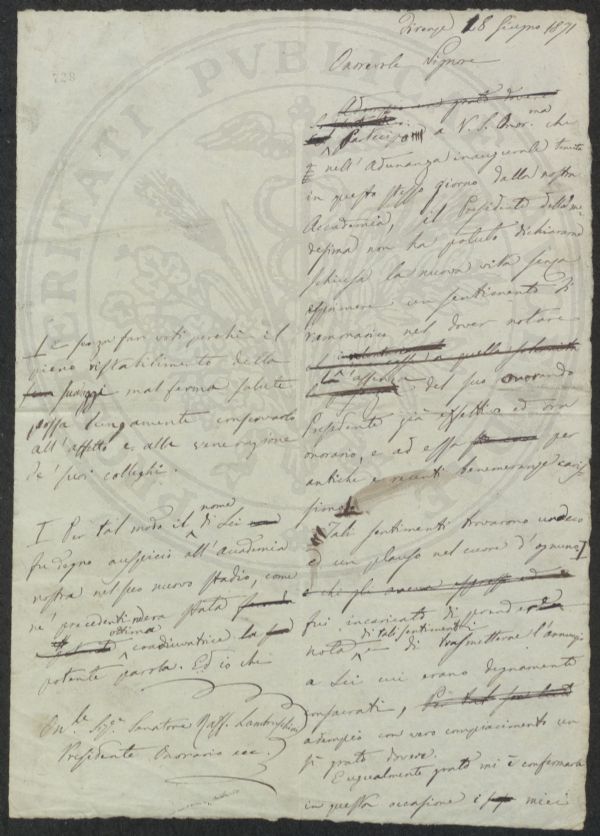 Firenze 18 Giugno 1871
Onorevole Signore
Adempio un grato dovere
Partecipo a V. S. Onor.ma che
nell'Adunanza inaugurale tenuta
in questo stesso giorno dalla nostra
Accademia, il Presidente della me-
desima non ha potuto dichiarare
schiusa la nuova vita senza
esprimere un sentimento di
rammarico nel dover notare
a quella solennità
l'assenza del suo onorando
Presidente già effettivo ed ora
onorario, e ad essa per
antiche e recenti benemerenze caris-
simo.
Tali sentimenti trovarono un eco
e un plauso nel cuore d'ognuno I
e chi gli aveva espressi ed
fui incaricato di prendere
nota di tali sentimenti e di trasmetterne l'annunzio
a Lei cui erano degnamente
consacrati,
adempio con vero compiacimento un
sì grato dovere.
Egualmente grato mi è confermarle
in questa occasione i miei
I e pazzo fare voti perchè il
pieno ristabilimento della
mal ferma salute
possa lungamente conservarlo
all'affetto e alla venerazione
de' suoi colleghi.
I Per tal modo il nome di Lei
fu degno auspicio all'Accademia
nostra nel suo nuovo stadio, come
ne' precedenti n'era stata
ottima coadiuvatrice la
potente parola. Ed io che
On.le Sig.r Senatore Raff. Lambruschini
Presidente Onorario ecc.
728